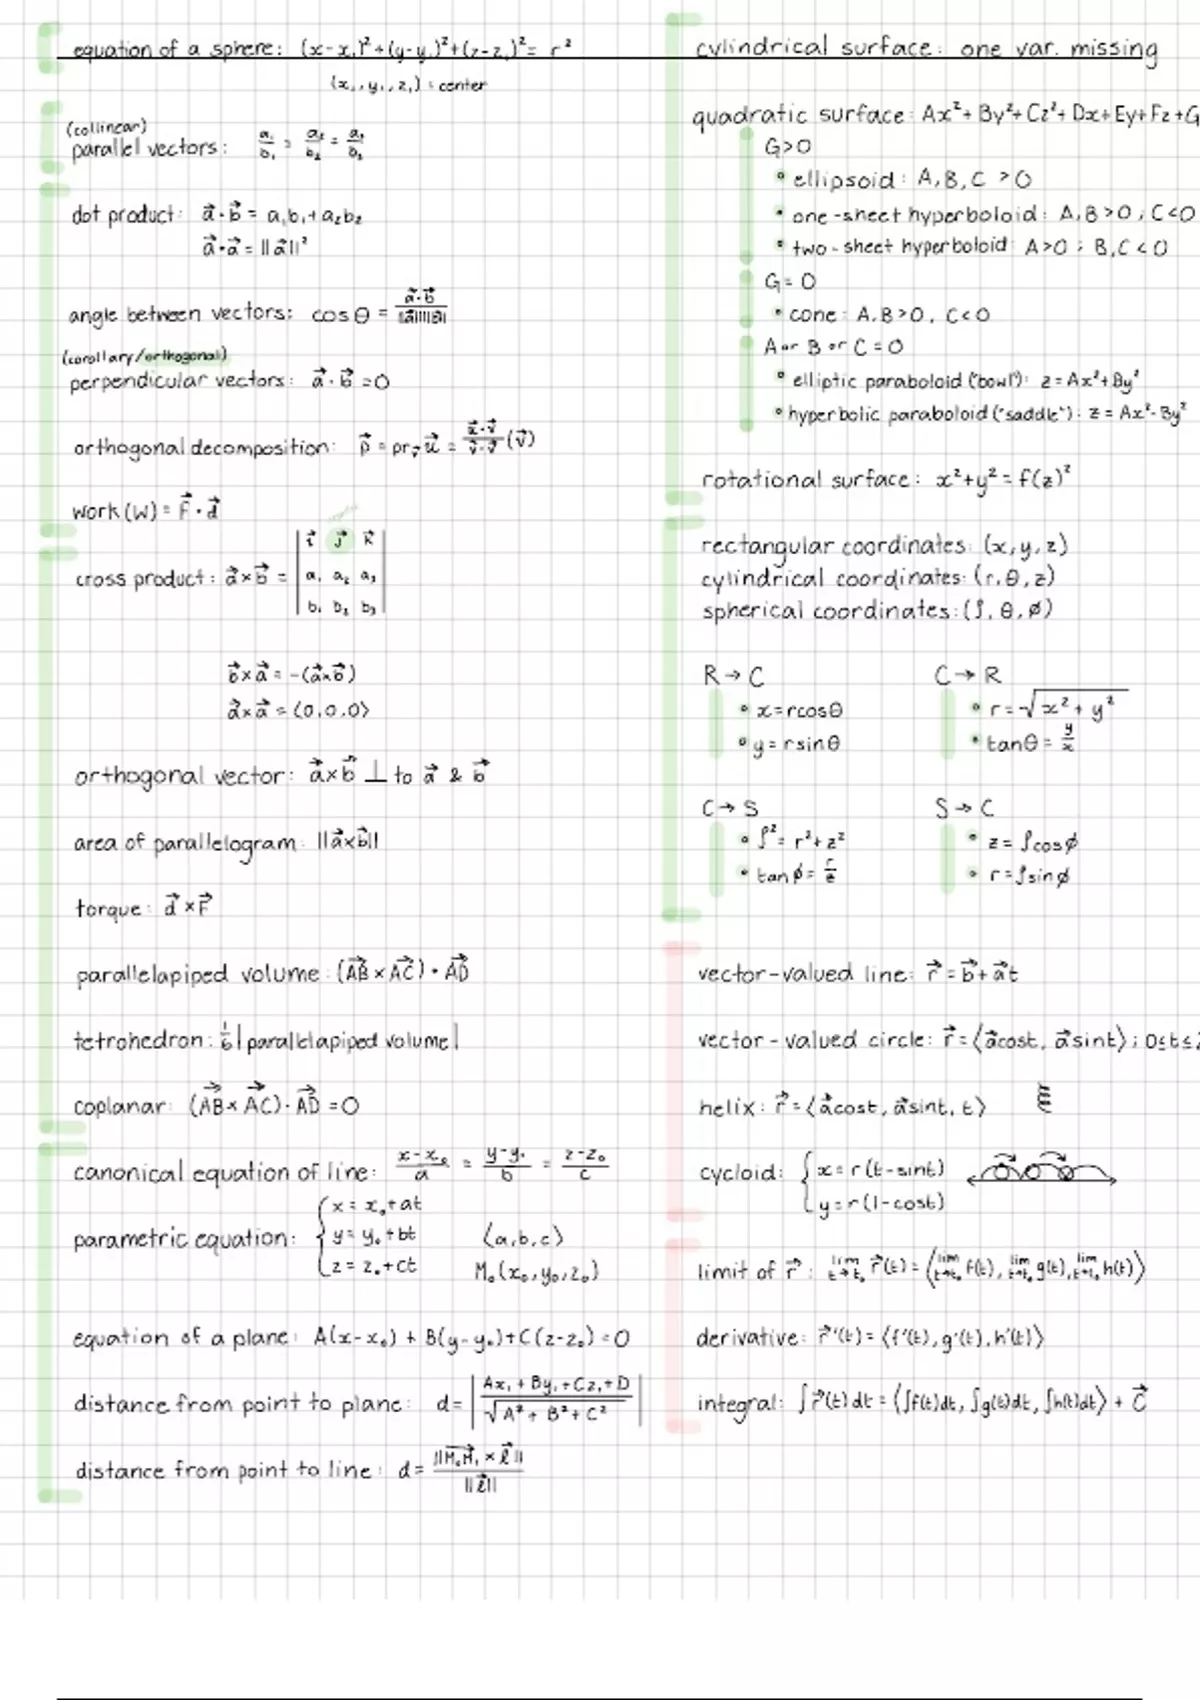 equation of a sphere: (x-x₁)²+(y-y₁)²+(z-z₁)²= r²
(x₁, y₁, z₁) = center
(collinear)
parallel vectors: a₁/b₁ = a₂/b₂ = a₃/b₃
dot product: a⃗·b⃗ = a₁b₁+a₂b₂
a⃗·a⃗ = ||a⃗||²
angle between vectors: cosθ = a⃗·b⃗/||a⃗||||b⃗||
(corollary/orthogonal)
perpendicular vectors: a⃗·b⃗ =0
orthogonal decomposition: p⃗ = pr_v⃗ u⃗ = (u⃗·v⃗)/(v⃗·v⃗) (v⃗)
work (W) = F⃗·d⃗
cross product: a⃗×b⃗ = | i⃗ j⃗ k⃗ |
| a₁ a₂ a₃ |
| b₁ b₂ b₃ |
b⃗×a⃗ = -(a⃗×b⃗)
a⃗×a⃗ = ⟨0,0,0⟩
orthogonal vector: a⃗×b⃗ ⊥ to a⃗ & b⃗
area of parallelogram: ||a⃗×b⃗||
torque: d⃗×F⃗
parallelapiped volume: (AB⃗×AC⃗)·AD⃗
tetrohedron: 1/6|parallelapiped volume|
coplanar: (AB⃗×AC⃗)·AD⃗ =0
canonical equation of line: (x-x₀)/a = (y-y₀)/b = (z-z₀)/c
parametric equation: { x = x₀+at
y = y₀+bt ⟨a,b,c⟩
z = z₀+ct M₀(x₀,y₀,z₀)
equation of a plane: A(x-x₀) + B(y-y₀)+C(z-z₀)=0
distance from point to plane: d= |(Ax₁+By₁+Cz₁+D)/√(A²+B²+C²)|
distance from point to line: d= ||M₀M₁⃗ × l⃗||/||l⃗||
cylindrical surface: one var. missing
quadratic surface: Ax²+By²+Cz²+Dx+Ey+Fz+G
G>0
• ellipsoid: A,B,C >0
• one-sheet hyperboloid: A,B>0; C<0
• two-sheet hyperboloid: A>0; B,C<0
G=0
• cone: A,B>0, C<0
A or B or C=0
• elliptic paraboloid ("bowl"): z=Ax²+By²
• hyperbolic paraboloid ("saddle"): z=Ax²-By²
rotational surface: x²+y²=f(z)²
rectangular coordinates: (x,y,z)
cylindrical coordinates: (r,θ,z)
spherical coordinates: (ρ,θ,φ)
R→C C→R
• x=rcosθ • r=√(x²+y²)
• y=rsinθ • tanθ=y/x
C→S S→C
• ρ²=r²+z² • z=ρcosφ
• tanφ=r/z • r=ρsinφ
vector-valued line: r⃗=b⃗+a⃗t
vector-valued circle: r⃗=⟨a⃗cost, a⃗sint⟩; 0≤t≤
helix: r⃗=⟨a⃗cost, a⃗sint, t⟩
cycloid: { x=r(t-sint)
y=r(1-cost)
limit of r⃗: lim t→t₀ r⃗(t)=⟨lim t→t₀ f(t), lim t→t₀ g(t), lim t→t₀ h(t)⟩
derivative: r⃗'(t)=⟨f'(t),g'(t),h'(t)⟩
integral: ∫r⃗(t)dt=⟨∫f(t)dt, ∫g(t)dt, ∫h(t)dt⟩+C⃗